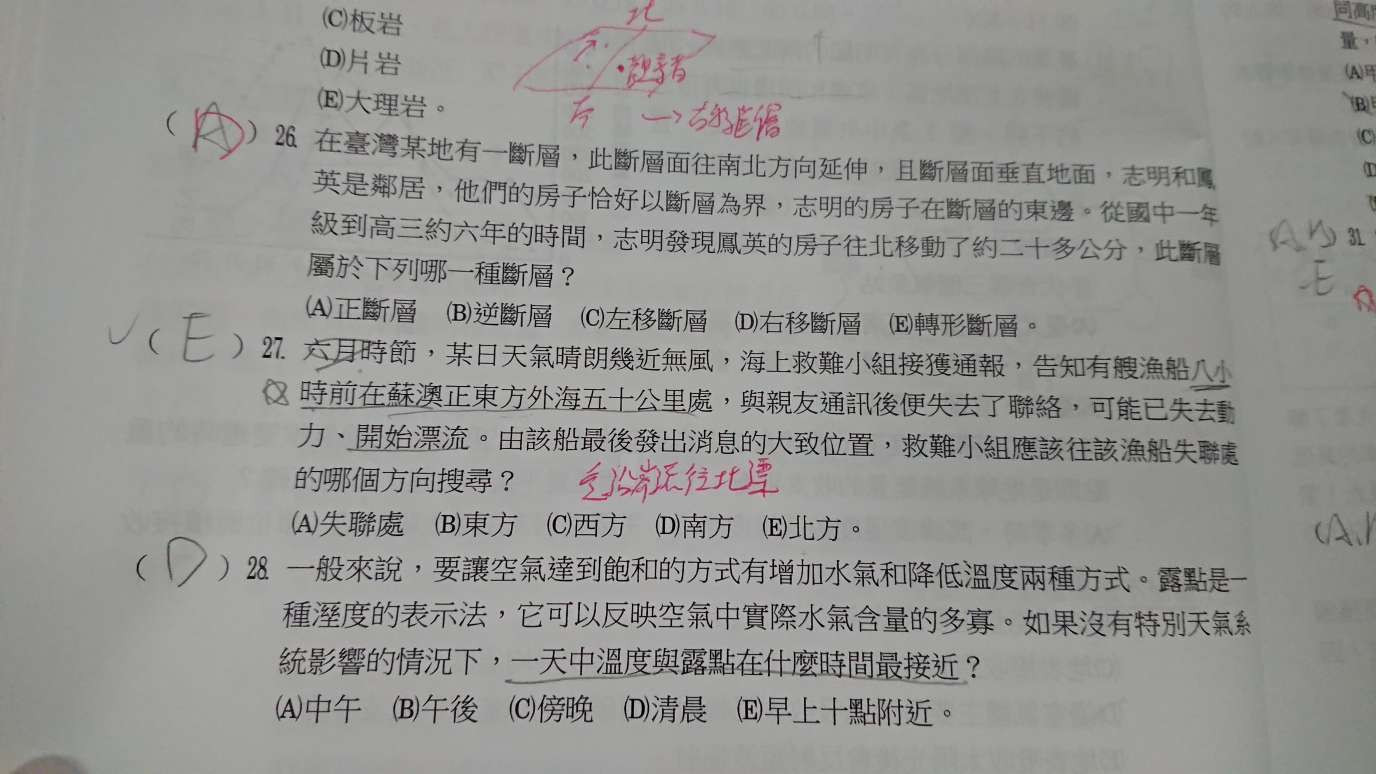 (C)板岩
(D)片岩
(E)大理岩。
北
觀察者
→右移斷層
(D) 26. 在臺灣某地有一斷層，此斷層面往南北方向延伸，且斷層面垂直地面，志明和鳳
英是鄰居，他們的房子恰好以斷層為界，志明的房子在斷層的東邊。從國中一年
級到高三約六年的時間，志明發現鳳英的房子往北移動了約二十多公分，此斷層
屬於下列哪一種斷層？
(A)正斷層 (B)逆斷層 (C)左移斷層 (D)右移斷層 (E)轉形斷層。
(E) 27. 六月時節，某日天氣晴朗幾近無風，海上救難小組接獲通報，告知有艘漁船八小
時前在蘇澳正東方外海五十公里處，與親友通訊後便失去了聯絡，可能已失去動
力、開始漂流。由該船最後發出消息的大致位置，救難小組應該往該漁船失聯處
的哪個方向搜尋？
沿岸流往北漂
(A)失聯處 (B)東方 (C)西方 (D)南方 (E)北方。
(D) 28. 一般來說，要讓空氣達到飽和的方式有增加水氣和降低溫度兩種方式。露點是一
種溼度的表示法，它可以反映空氣中實際水氣含量的多寡。如果沒有特別天氣系
統影響的情況下，一天中溫度與露點在什麼時間最接近？
(A)中午 (B)午後 (C)傍晚 (D)清晨 (E)早上十點附近。
同高
量，
(A)甲
(B)
(C)
(D)
31
E